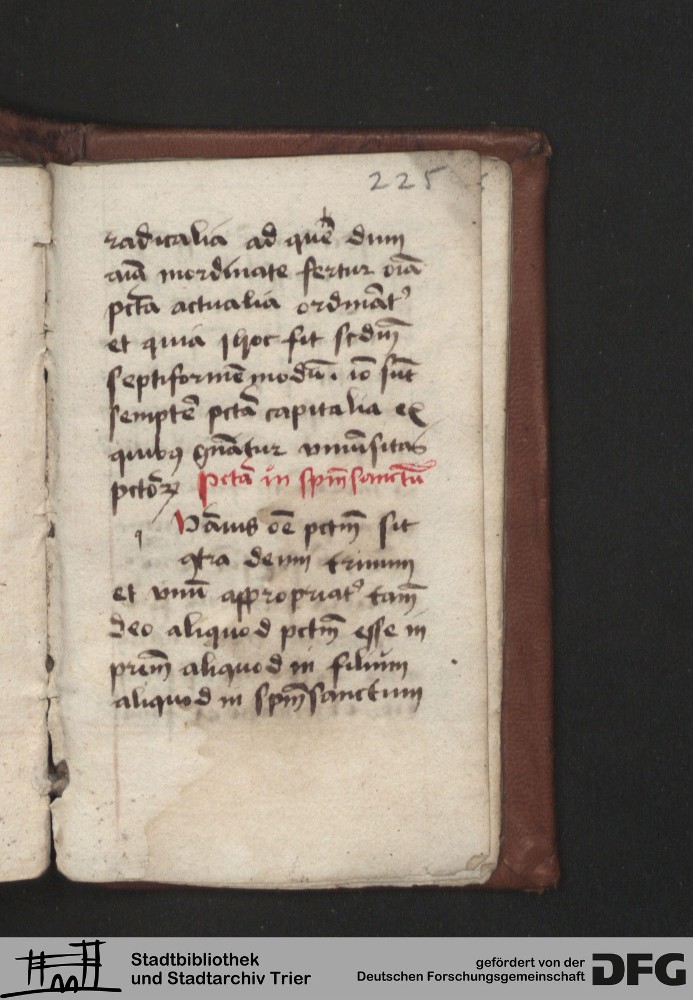 225
radicalia ad quē dum
aīā inordinate fertur oīā
pctā actualia ordināt᾿
et quia ihoc fit scdm̄
septiformē modū. iō sūt
semptē pctā capitalia ex
quibꝯ gn̄ātur vniūsitas
pctōꝝ Pctā in spm̄sanctū
Vāuis oē pctm̄ sit
q
ꝯtra deum trinum
et vnū appropriat᾿ tam̄
deo aliquod pctm̄ esse in
prēm aliquod in filium
aliquod in spm̄sanctum
Stadtbibliothek
und Stadtarchiv Trier
gefördert von der
Deutschen Forschungsgemeinschaft
DFG